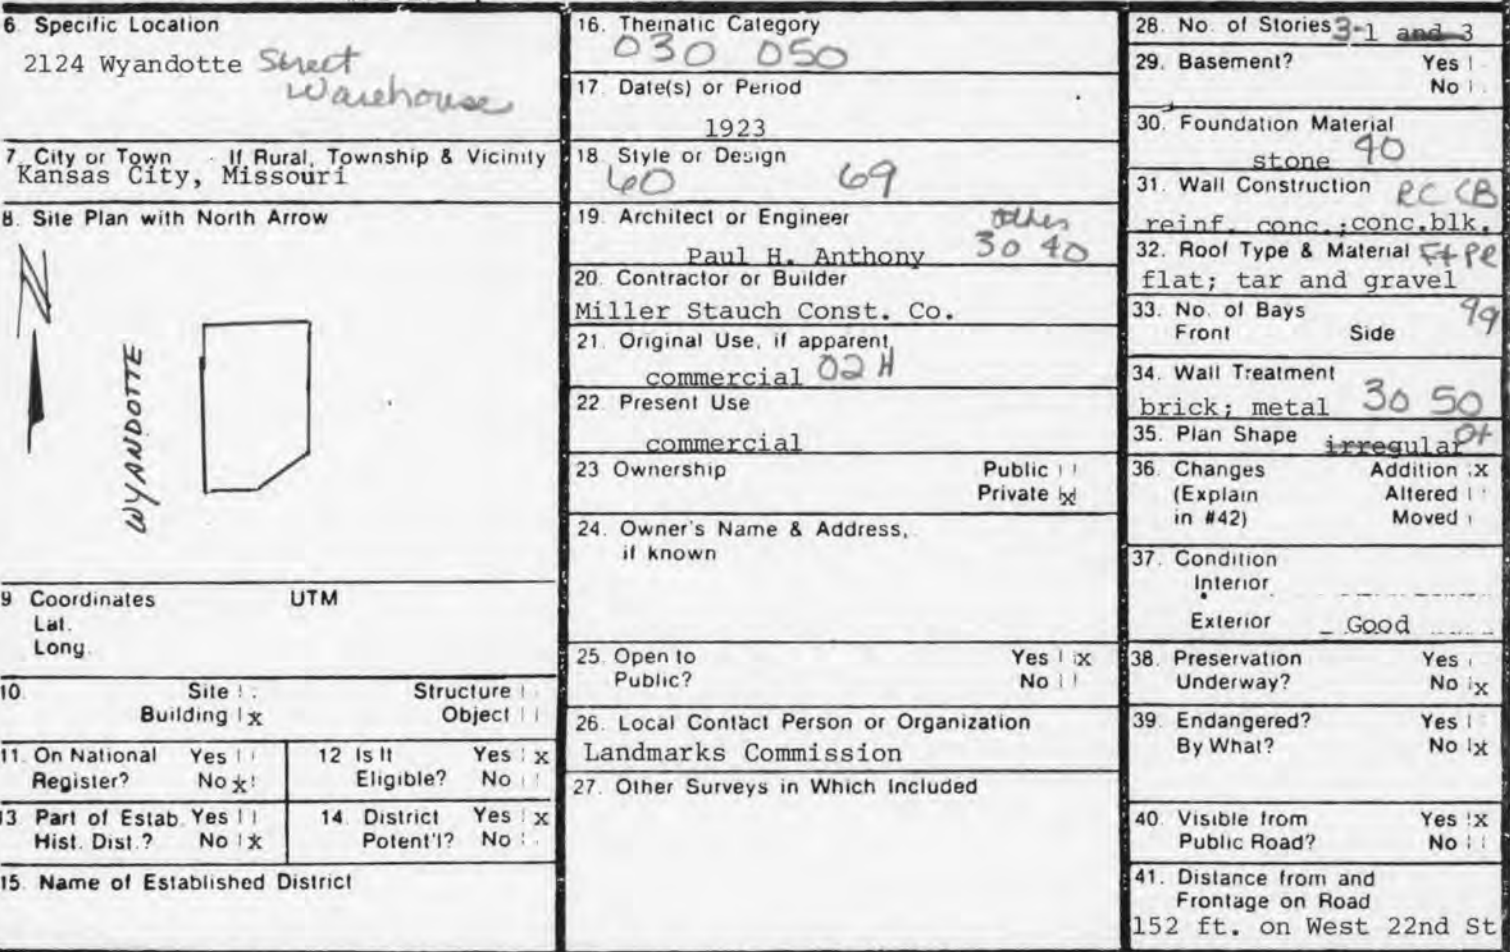 6. Specific Location
2124 Wyandotte Street
Warehouse
7. City or Town If Rural, Township & Vicinity
Kansas City, Missouri
8. Site Plan with North Arrow
N
WYANDOTTE
9 Coordinates UTM
Lat.
Long.
10. Site Structure
Building x Object
11. On National Yes
Register? No x
12 Is It Yes x
Eligible? No
13 Part of Estab. Yes
Hist. Dist.? No x
14. District Yes x
Potent'l? No
15. Name of Established District
16. Thematic Category
030 050
17. Date(s) or Period
1923
18. Style or Design
60 69
19. Architect or Engineer other
Paul H. Anthony 30 40
20. Contractor or Builder
Miller Stauch Const. Co.
21. Original Use, if apparent
commercial 02H
22. Present Use
commercial
23 Ownership Public
Private x
24. Owner's Name & Address,
if known
25. Open to Yes x
Public? No
26. Local Contact Person or Organization
Landmarks Commission
27. Other Surveys in Which Included
28. No. of Stories 3-1 and 3
29. Basement? Yes
No
30. Foundation Material
stone 40
31. Wall Construction RC CB
reinf. conc.; conc.blk.
32. Roof Type & Material Ft PR
flat; tar and gravel
33. No. of Bays 99
Front Side
34. Wall Treatment
brick; metal 30 50
35. Plan Shape irregular Ot
36. Changes Addition x
(Explain Altered
in #42) Moved
37. Condition
Interior
Exterior Good
38. Preservation Yes
Underway? No x
39. Endangered? Yes
By What? No x
40. Visible from Yes x
Public Road? No
41. Distance from and
Frontage on Road
152 ft. on West 22nd St